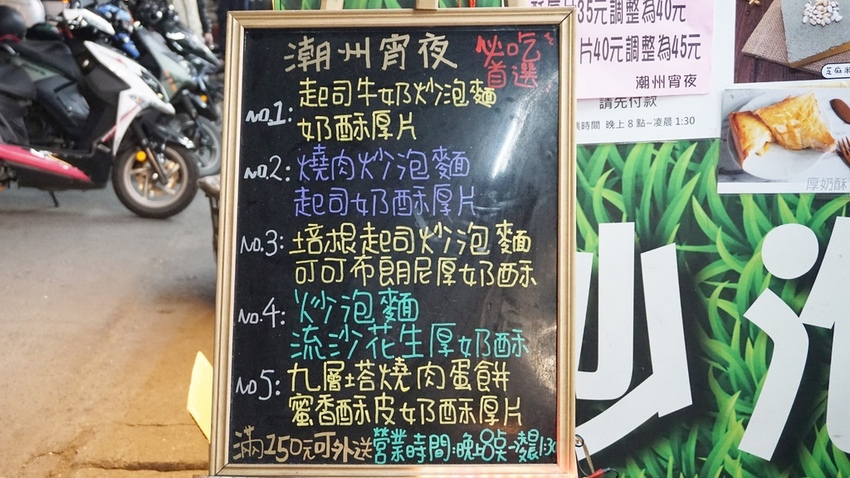 潮州宵夜
必吃
首選
NO.1:
起司牛奶炒泡麵
奶酥厚片
NO.2:
燒肉炒泡麵
起司奶酥厚片
NO.3:
培根起司炒泡麵
可可布朗尼厚奶酥
NO.4:
炒泡麵
流沙花生厚奶酥
NO5:
九層塔燒肉蛋餅
蜜香酥皮奶酥厚片
滿150元可外送
營業時間:晚上8點→凌晨1:30
35元調整為40元
片40元調整為45元
潮州宵夜
請先付款
時間 晚上 8 點~凌晨 1:30
芝麻
厚奶酥
炒